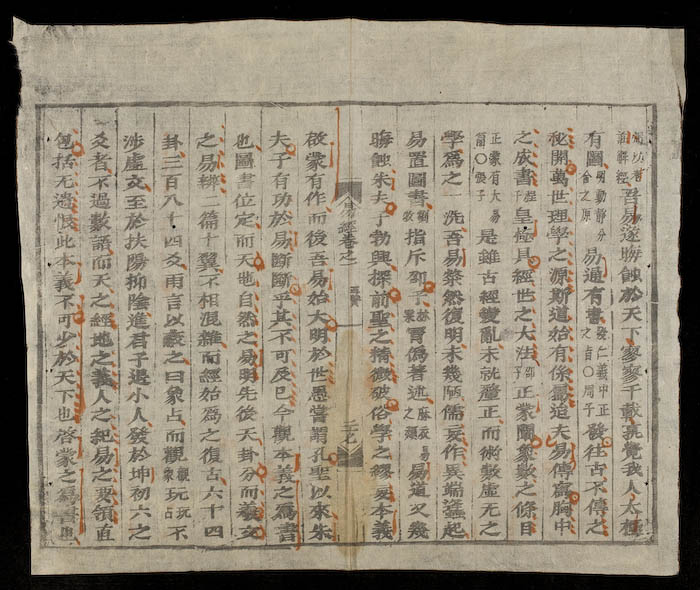 吾易遂晦蝕於天下寥寥千載孰覺我人太極
有圖明動靜分含之原易通有書發仁義中正之旨〇周子發往古不傳之
秘開萬世理學之源斯道始有係夫易傳寓胸中
之成書程子皇極具經世之大法邵子正蒙闡象數之條目
正蒙有大易篇〇張子是雖古經變亂未就釐正而術數虛无之
學爲之一洗吾易粲然復明未幾陋儒妄作異端蠭起
易置圖書劉牧指斥邵子林栗贗僞著述麻衣易之類易道又幾
晦蝕朱夫子勃興探前聖之精微破俗學之繆妄本義
易經卷之一
五贊
二七
啟蒙有作而後吾易始大明於世愚嘗謂孔聖以來朱
夫子有功於易斷斷乎其不可及已今觀本義之爲書
也圖書位定而天地自然之易明先後天卦分而羲文
之易辨二篇十翼不相混雜而經始爲之復古六十四
卦三百八十四爻兩言以蔽之曰象占而觀觀象玩玩占不
涉虛文至於扶陽抑陰進君子退小人發於坤初六之
爻者不過數語而天之經地之義人之紀易之要領直
包括无遺恨此本義不可少於天下也啓蒙之爲書